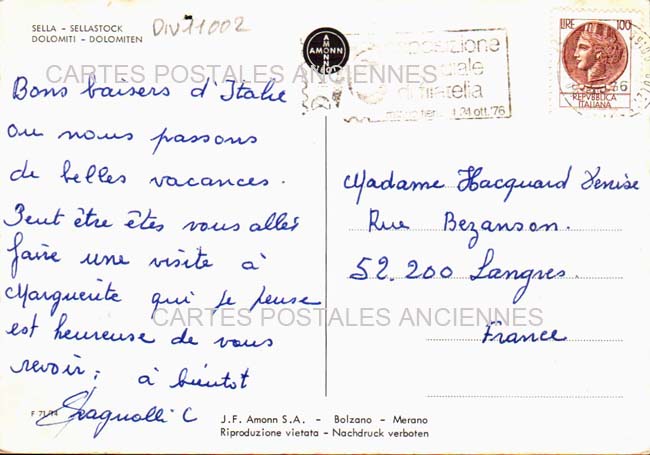 SELLA - SELLASTOCK
DOLOMITI - DOLOMITEN
DIV11002
AMONN
AMONN
LIRE 100
REPVBBLICA
ITALIANA
filatelia
24 ott. '76
CARTES POSTALES ANCIENNES
Bons baisers d'Italie
ou nous passons
de belles vacances.
Peut être êtes vous allés
faire une visite à
Marguerite qui je pense
est heureuse de vous
revoir; à bientot
C
Madame Hacquard Denise
Rue Bezanson.
52.200 Langres.
France
CARTES POSTALES ANCIENNES
F 71/14
J.F. Amonn S.A. - Bolzano - Merano
Riproduzione vietata - Nachdruck verboten